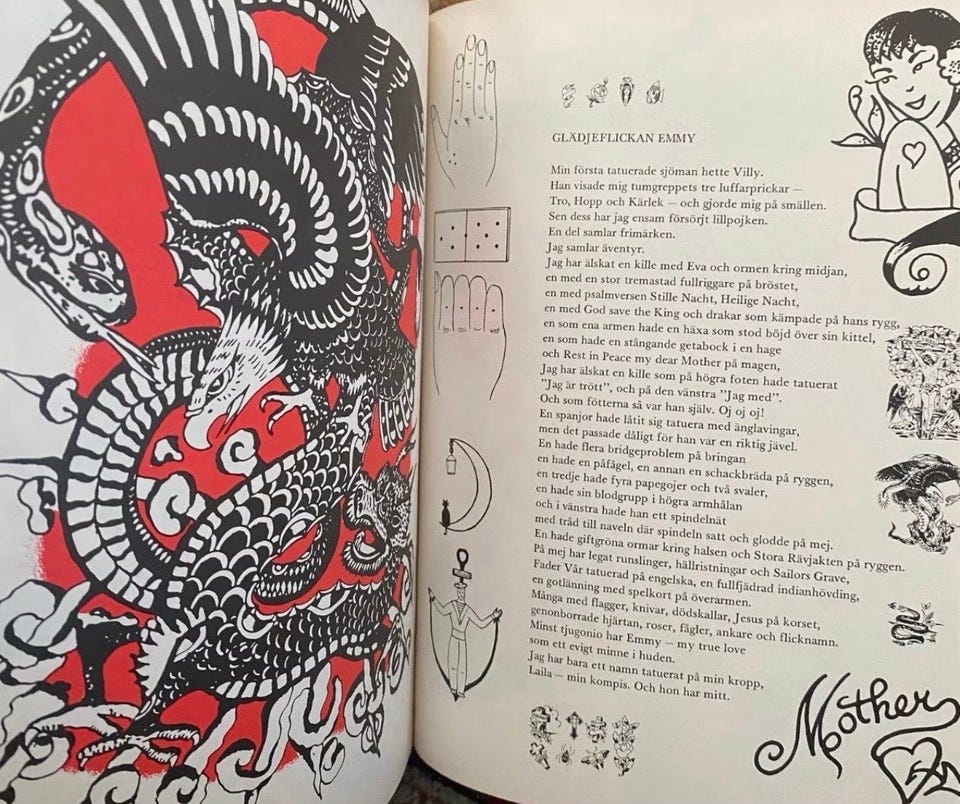 GLÄDJEFLICKAN EMMY
Min första tatuerade sjöman hette Villy.
Han visade mig tumgreppets tre luffarprickar –
Tro, Hopp och Kärlek – och gjorde mig på smällen.
Sen dess har jag ensam försörjt lillpojken.
En del samlar frimärken.
Jag samlar äventyr.
Jag har älskat en kille med Eva och ormen kring midjan,
en med en stor tremastad fullriggare på bröstet,
en med psalmversen Stille Nacht, Heilige Nacht,
en med God save the King och drakar som kämpade på hans rygg,
en som ena armen hade en häxa som stod böjd över sin kittel,
en som hade en stångande getabock i en hage
och Rest in Peace my dear Mother på magen,
Jag har älskat en kille som på högra foten hade tatuerat
"Jag är trött", och på den vänstra "Jag med".
Och som fötterna så var han själv. Oj oj oj!
En spanjor hade låtit sig tatuera med änglavingar,
men det passade dåligt för han var en riktig jävel.
En hade flera bridgeproblem på bringan
en hade en påfågel, en annan en schackbräda på ryggen,
en tredje hade fyra papegojer och två svalor,
en hade sin blodgrupp i högra armhålan
och i vänstra hade han ett spindelnät
med tråd till naveln där spindeln satt och glodde på mej.
En hade giftgröna ormar kring halsen och Stora Rävjakten på ryggen.
På mej har legat runslingor, hällristningar och Sailors Grave,
Fader Vår tatuerad på engelska, en fullfjädrad indianhövding,
en gotlänning med spelkort på överarmen.
Många med flaggor, knivar, dödskallar, Jesus på korset,
genomborrade hjärtan, roser, fåglar, ankare och flicknamn.
Minst tjugonio har Emmy – my true love
som ett evigt minne i huden.
Jag har bara ett namn tatuerat på min kropp,
Laila – min kompis. Och hon har mitt.
Mother